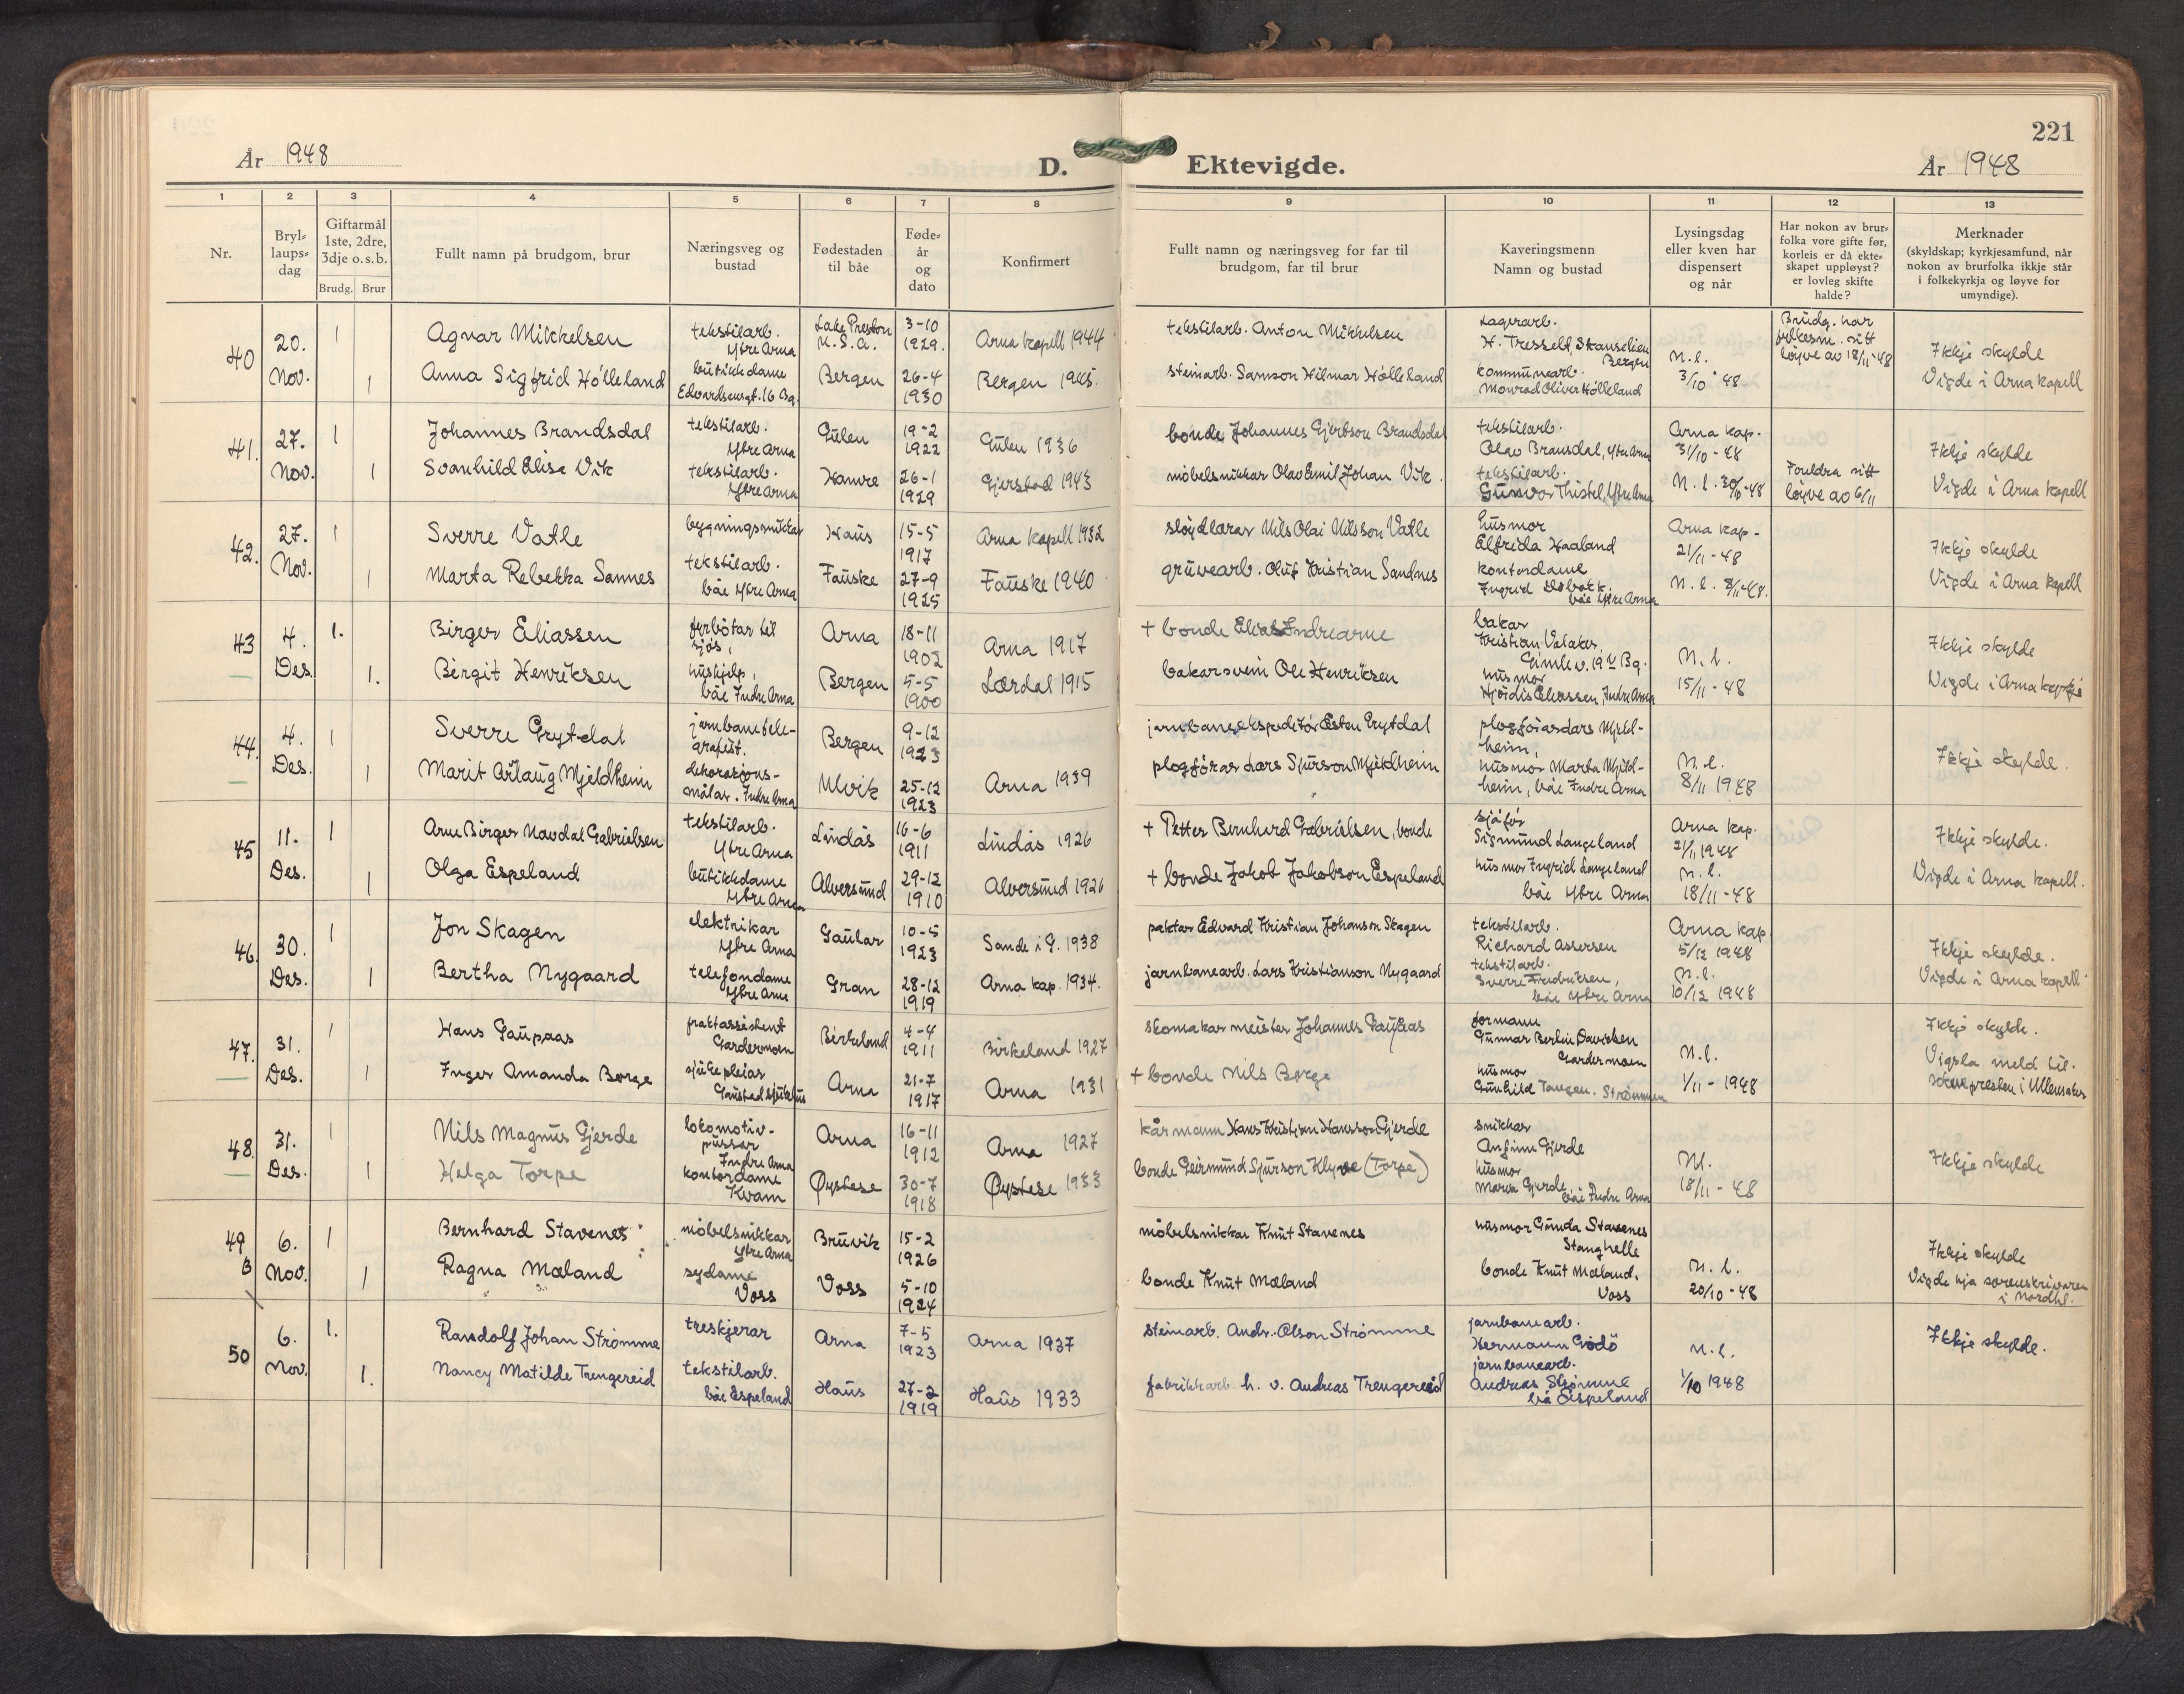 221
År 1948 D. Ektevigde. År 1948
1 2 3 4 5 6 7 8 9 10 11 12 13
Nr.
Bryllaupsdag
Giftarmål 1ste, 2dre, 3dje o.s.b.
Brudg. Brur
Fullt namn på brudgom, brur
Næringsveg og bustad
Fødestaden til båe
Føde-år og dato
Konfirmert
Fullt namn og næringsveg for far til brudgom, far til brur
Kaveringsmenn
Namn og bustad
Lysingsdag eller kven har dispensert og når
Har nokon av brurfolka vore gifte før, korleis er då ekteskapet uppløyst? er lovleg skifte halde?
Merknader
(skyldskap; kyrkjesamfund, når nokon av brurfolka ikkje står i folkekyrkja og løyve for umyndige).
40 20. Nov.
1 Agnar Mikkelsen tekstilarb. Ytre Arna Lake Preston U.S.A. 3-10 1929. Arna kapell 1944 tekstilarb. Anton Mikkelsen Lagerarb. H. Tresselt, Skanselien Bergen
1 Anna Sigfrid Hølleland butikkdame Edvardsensgt. 16 Bg. Bergen 26-4 1930 Bergen 1945. steinarb. Samson Hilmar Hølleland kommunearb. Monrad Oliver Hølleland
N.l. 3/10 48 Brudg. har fylkesm. sitt løyve av 18/11-48 Ikkje skylde Vigde i Arna kapell
41. 27. Nov.
1 Johannes Brandsdal tekstilarb. Ytre Arna Gulen 19-2 1922 Gulen 1936 bonde Johannes Gjertson Brandsdal tekstilarb. Olav Bransdal, Ytre Arna Arna kap. 31/10-48
1 Svanhild Elise Vik tekstilarb. Ytre Arna Hamre 26-1 1929 Gjerstad 1943 møbelsnikkar Olav Emil Johan Vik. tekstilarb. Gunvor Thistel, Ytre Arna N.l. 30/10-48
Foreldra sitt løyve av 6/11 Ikkje skylde Vigde i Arna kapell
42. 27. Nov.
1 Sverre Vatle bygningssnikkar Haus 15-5 1917 Arna kapell 1932 sløydlærar Nils Olai Nilsson Vatle husmor Elfrida Haaland Arna kap- 21/11-48
1 Marta Rebekka Sannes tekstilarb. båe Ytre Arna Fauske 27-9 1925 Fauske 1940 gruvearb. Oluf Kristian Sandnes kontordame Ingrid båe Ytre Arna N.l. 8/11-48.
Ikkje skylde Vigde i Arna kapell
43 4. Des.
1. Birger Eliassen fyrbøtar til sjøs, Arna 18-11 1902 Arna 1917 + bonde Elias Indrearne bakar Kristian Valaker, Gimlev. 19 Bg.
1. Birgit Henriksen hushjelp, båe Indre Arna Bergen 5-5 1900 Lærdal 1915 bakarsvein Ole Henriksen husmor Hjørdis Eliassen, Indre Arna
N.l. 15/11-48 Ikkje skylde Vigde i Arna kyrkje
44. 4. Des.
1 Sverre Grytdal jarnbanetele-grafist. Bergen 9-12 1923 jarnbaneekspeditør Esten Grytdal plogførar Lars Mjeld-heim,
1 Marit Årlaug Mjeldheim dekorasjons-målar. Indre Arna Ulvik 25-12 1923 Arna 1939 plogførar Lars Sjurson Mjeldheim husmor Marta Mjeld-heim, båe Indre Arna
N.l. 8/11 1948 Ikkje skylde.
45 11. Des.
1 Arne Birger Navdal Gabrielsen tekstilarb. Ytre Arna Lindås 16-6 1911 Lindås 1926 + Petter Bernhard Gabrielsen, bonde sjåfør Sigmund Langeland Arna kap. 21/11 1948
1 Olga Espeland butikkdame Ytre Arna Alversund 29-12 1910 Alversund 1926 + bonde Jakob Jakobson Espeland husmor Ingrid Langeland båe Ytre Arna N.l. 18/11-48
Ikkje skylde. Vigde i Arna kapell.
46. 30. Des.
1 Jon Skagen elektrikar Ytre Arna Gaular 10-5 1923 Sande i G. 1938 paktar Edvard Kristian Johanson Skagen tekstilarb. Richard Assersen Arna kap 5/12 1948
1 Bertha Nygaard telefondame Ytre Arna Gran 28-12 1919 Arna kap. 1934. jarnbanearb. Lars Kristianson Nygaard tekstilarb. Sverre Fredriksen, båe Ytre Arna N.l. 10/12 1948
Ikkje skylde. Vigde i Arna kapell
47. 31. Des.
1 Hans Gaupaas fraktassistent Gardermoen Birkeland 4-4 1911 Birkeland 1927 skomakarmeister Johannes Gaupaas formann Gunnar Berlin Davidsen Gardermoen
1 Inger Amanda Borge sjukepleiar Gaustad sjukehus Arna 21-7 1917 Arna 1931 + bonde Nils Borge husmor Gunhild Tangen. Strømmen
N.l. 1/11-1948 Ikkje skylde. Vigsla meld til. soknepresten i Ullensaker
48. 31. Des.
1 Nils Magnus Gjerde lokomotiv-pussar Indre Arna Arna 16-11 1912 Arna 1927 kårmann Hans Kristian Hansson Gjerde snikkar Anfinn Gjerde
1 Helga Torpe kontordame Kvam Øystese 30-7 1918 Øystese 1933 bonde Geirmund Sjurson Klyve (Torpe) husmor Maria Gjerde, båe Indre Arna
Nl. 18/11-48 Ikkje skylde
49 B 6. Nov.
1 Bernhard Stavenes møbelsnikkar Ytre Arna Bruvik 15-2 1926 møbelsnikkar Knut Stavenes husmor Gunda Stavenes Stanghelle
1 Ragna Mæland sydame Voss Voss 5-10 1924 bonde Knut Mæland bonde Knut Mæland. Voss
N.l. 20/10-48 Ikkje skylde Vigde hja sorenskrivaren i Nordhl.
50 6. Nov.
1. Randolf Johan Strømme treskjerar Arna 7-5 1923 Arna 1937 steinarb. Andr. Olson Strømme jarnbanearb. Hermann Godø
1. Nancy Matilde Trengereid tekstilarb. båe Espeland Haus 27-2 1919 Haus 1933 fabrikkarb. h. v. Andreas Trengereid jarnbanearb. Andreas Strømme bå Espeland
N.l. 1/10 1948 Ikkje skylde.